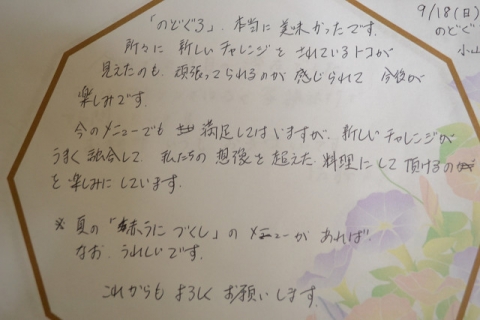 9/18(日)
のどぐ
小山
「のどぐろ」、本当に美味かったです。
所々に新しいチャレンジをされているトコが
見えたのも、頑張ってられるのが感じられて今後が
楽しみです。
今のメニューでも満足してはいますが、新しいチャレンジが
うまく融合して、私たちの想像を超えた料理にして頂けるの
を楽しみにしています。
※ 夏の「赤うにづくし」のメニューがあれば
なお、うれしいです。
これからもよろしくお願いします。